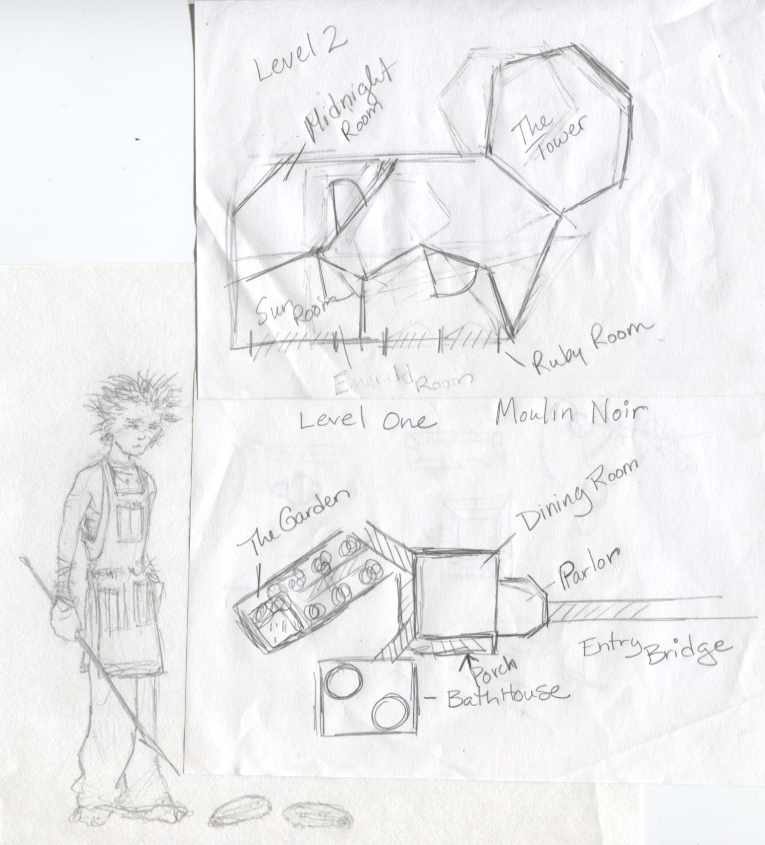 Level 2
Midnight
Room
The
Tower
Sun Room
Emerald Room
Ruby Room
Level One
Moulin Noir
The Garden
Dining Room
Parlor
Entry Bridge
Porch
BathHouse